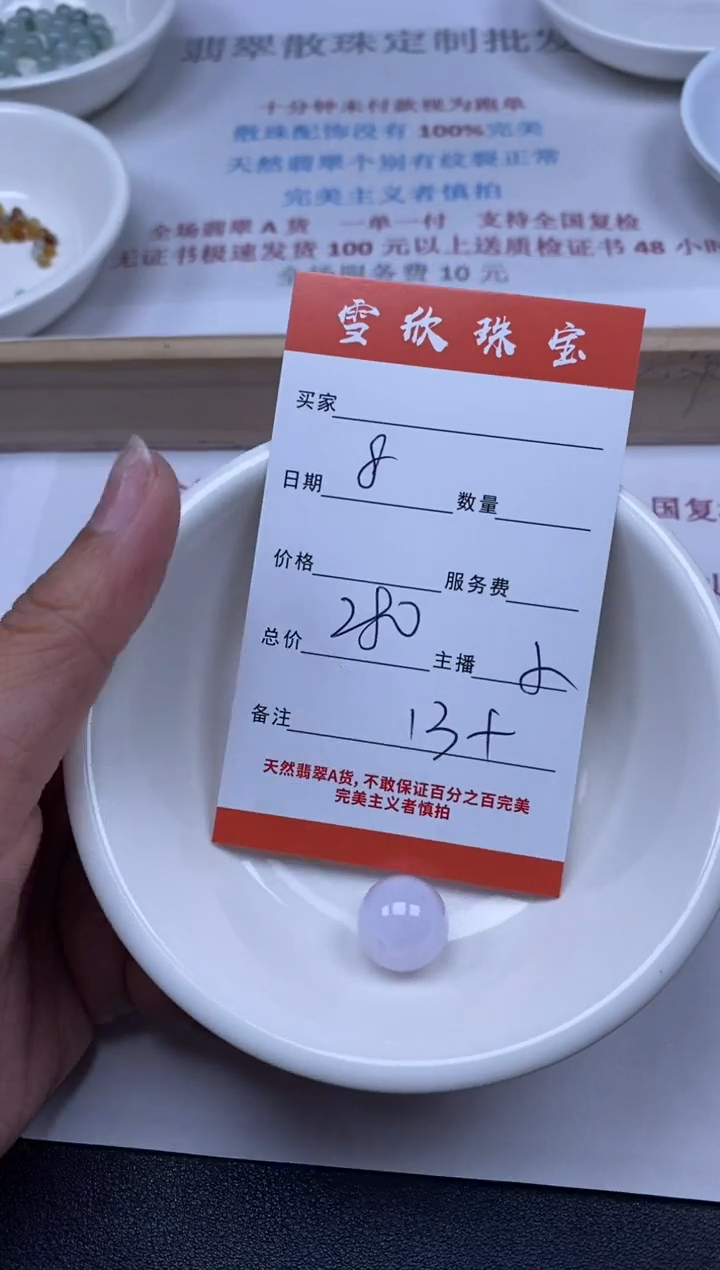 翡翠散珠定制批发
十分钟未付款视为跑单
散珠配饰没有 100%完美
天然翡翠个别有纹裂正常
完美主义者慎拍
全场翡翠 A 货 一单一付 支持全国复检
无证书极速发货 100 元以上送质检证书 48 小时
全场服务费 10 元
雪欣珠宝
买家
日期 8 数量
价格 服务费
总价 280 主播
备注 13+
天然翡翠A货,不敢保证百分之百完美
完美主义者慎拍
国复